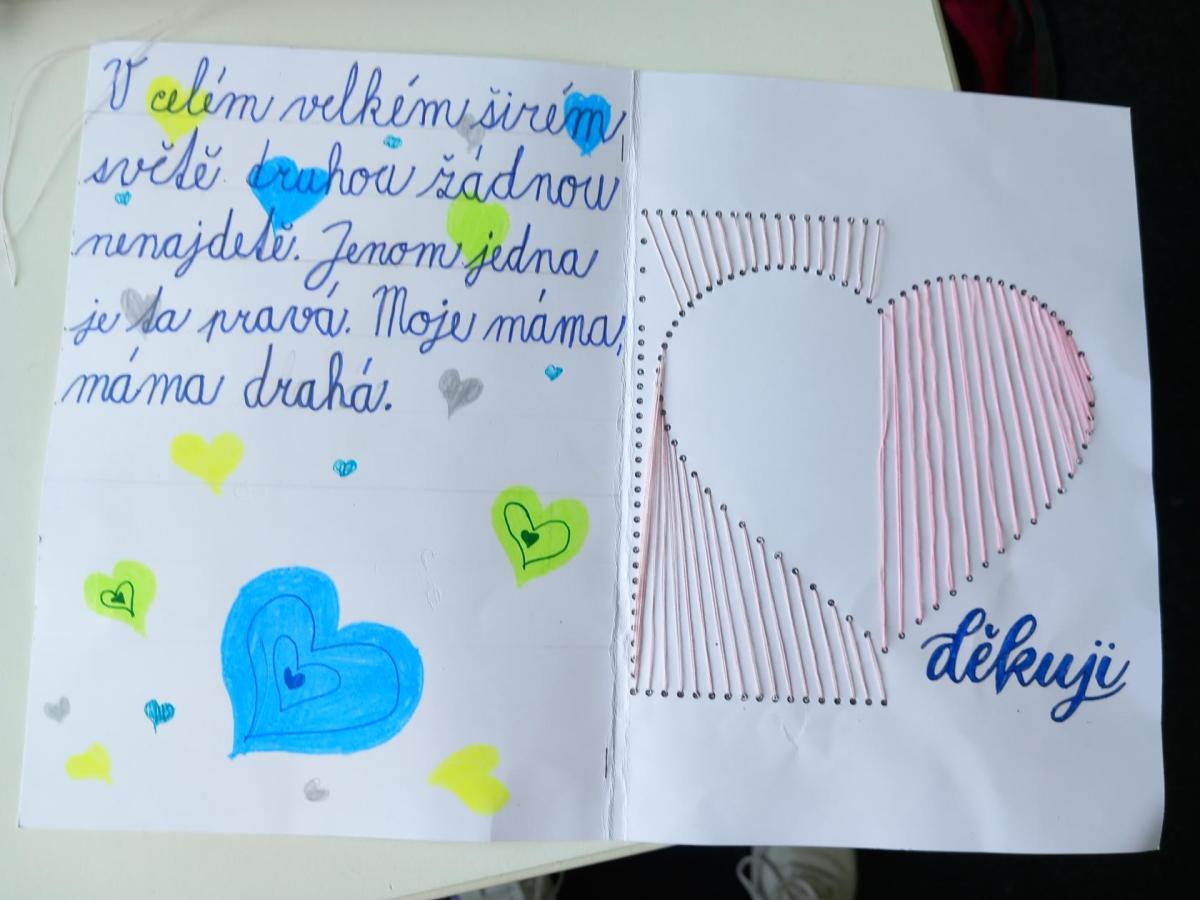 V celém velkém širém
světě druhou žádnou
nenajdetě. Jenom jedna
je ta pravá. Moje máma,
máma drahá.
děkuji